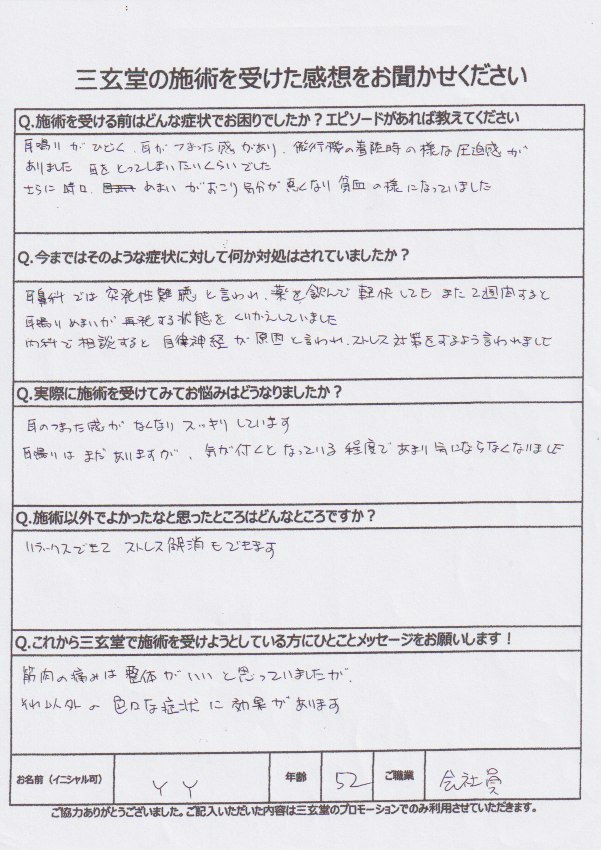 三玄堂の施術を受けた感想をお聞かせください
Q.施術を受ける前はどんな症状でお困りでしたか？エピソードがあれば教えてください
耳鳴りがひどく、耳がつまった感があり、飛行機の着陸時の様な圧迫感が
ありました 耳をとってしまいたいくらいでした
さらに時々、めまいがおこり気分が悪くなり貧血の様になっていました
Q.今まではそのような症状に対して何か対処はされていましたか？
耳鼻科では突発性難聴と言われ、薬を飲んで軽快してもまた2週間すると
耳鳴りめまいが再発する状態をくりかえしていました
内科で相談すると自律神経が原因と言われ、ストレス対策をするよう言われました
Q.実際に施術を受けてみてお悩みはどうなりましたか？
耳のつまった感がなくなりスッキリしています
耳鳴りはまだありますが、気が付くとなっている程度であまり気にならなくなりました
Q.施術以外でよかったなと思ったところはどんなところですか？
リラックスできて ストレス解消もできます
Q.これから三玄堂で施術を受けようとしている方にひとことメッセージをお願いします！
筋肉の痛みは整体がいいと思っていましたが、
それ以外の色々な症状に効果があります
お名前（イニシャル可） YY 年齢 52 ご職業 会社員
ご協力ありがとうございました。ご記入いただいた内容は三玄堂のプロモーションでのみ利用させていただきます。